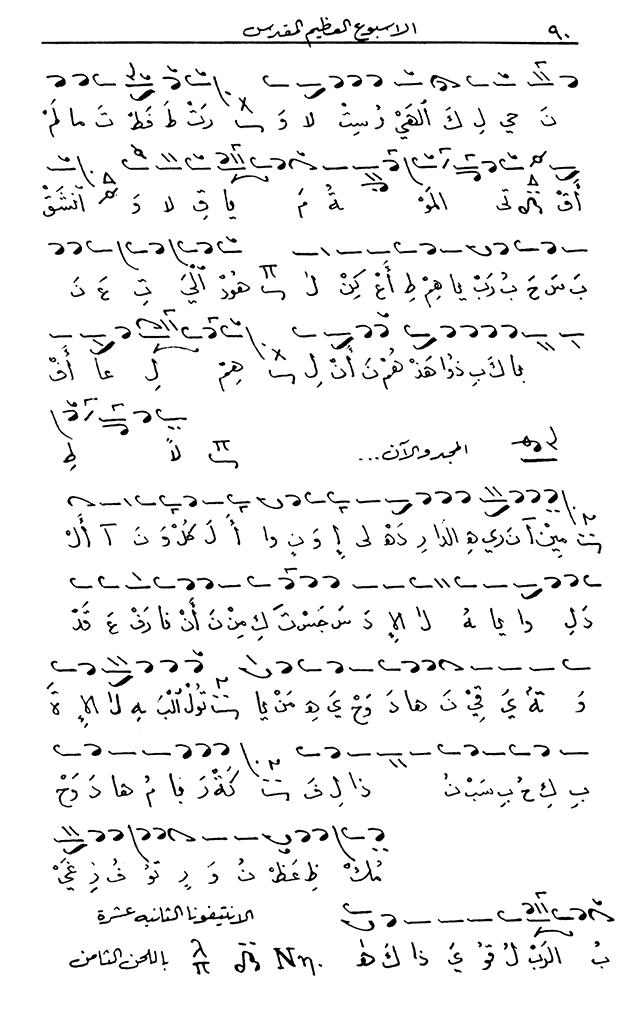 ٩٠ الاسبوع العظيم المقدس
نَ حي لِ كَ آلهَيْ رُسِتْ لا وَ رَتْ طَ فَطَ تَ ما لَمْ
أَقْ تى المَوْ ةُ مَ يا قِ لا وَ آنشَقْ
بَ سَ حَ بُ رَبْ يا هِمْ طِ أَعْ كِنْ لٰ هُودْ آلْيَ تِ عَ نَ
با كَ بِ ذوا هَذْ هُمْ نَ أَنْ لِ هِمْ لِ عا أَفْ
المجد والآن...
طِ لاً
مينْ آ نَ ري هِ الدّا رِ دَهْ لى إِ وَ نِ وا أَ لَ كُلْ وَ نَ آ أَلْ
دَلِ وا يا هُ لٰ الإِ دَ سَ جَسْ تَ كِ مِنْ نَ أَنْ فا رَفْ عَ قَدْ
وَ ةُ يَ قيْ نَ ها دَ وَحْ يَ هِ مَنْ يا تولْ آلبْ هِ لٰ الإِ ةَ
بِ كِ حُ بِ سَبْ نُ ذا لِ فَ كَةْ رَ با مُ ها دَ وَحْ
مُكْ ظِ عَظْ نُ وَ رِ تو فُ ذِ غَيْ
الانتيفونا الثانية عشرة
بُ الرَبْ لُ قو يَ ذا كَ هٰ Νη. باللحن الثامن